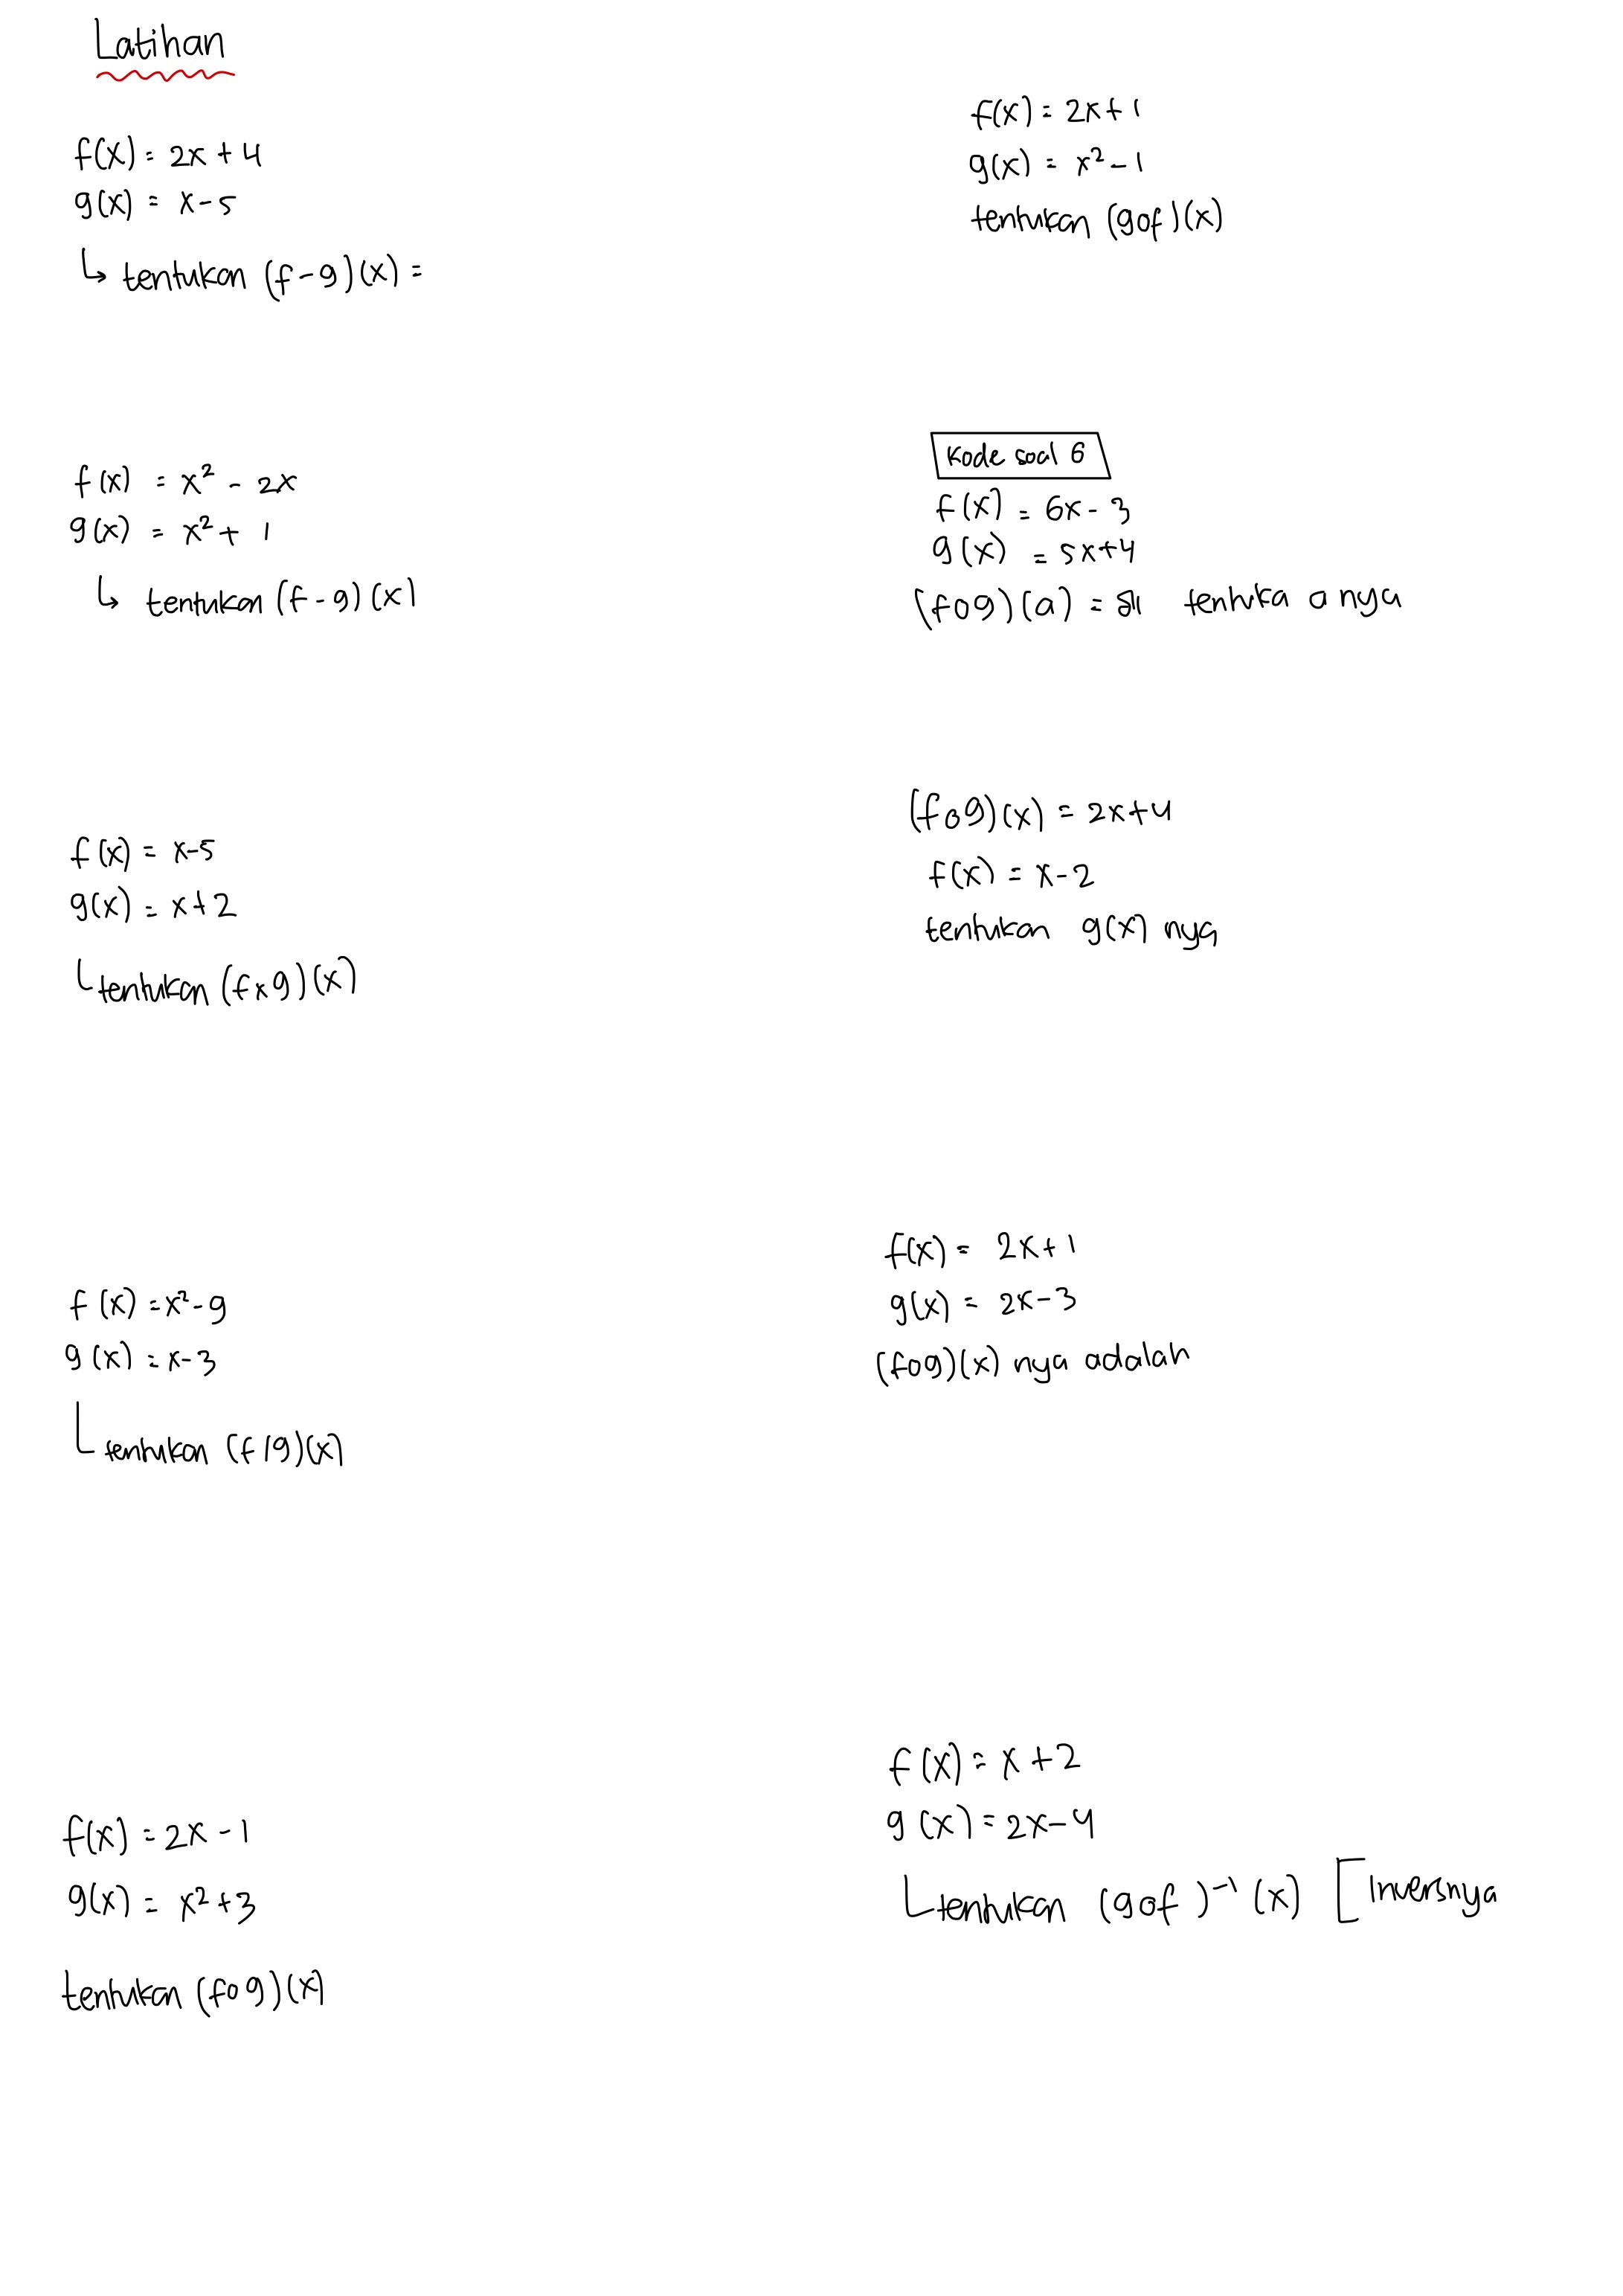 Latihan
f(x) = 2x + 4
g(x) = x - 5
↳ tentukan (f - g)(x) =
f(x) = x² - 2x
g(x) = x² + 1
↳ tentukan (f - g)(x)
f(x) = x - 5
g(x) = x + 2
tentukan (f x g)(x)
f(x) = x² - 9
g(x) = x - 3
tentukan (f/g)(x)
f(x) = 2x - 1
g(x) = x² + 3
tentukan (fog)(x)
f(x) = 2x + 1
g(x) = x² - 1
tentukan (gof)(x)
Kode soal 6
f(x) = 6x - 3
g(x) = 5x + 4
(fog)(a) = 81 tentuka a nya
(fog)(x) = 2x + 4
f(x) = x - 2
tentukan g(x) nya
f(x) = 2x + 1
g(x) = 2x - 3
(fog)(x) nya adalah
f(x) = x + 2
g(x) = 2x - 4
tentukan (gof)⁻¹(x) [Inversnya